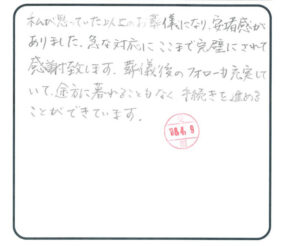 私が思っていた以上のお葬儀になり、安堵感が
ありました。急な対応にここまで完璧にされて
感謝致します。葬儀後のフォローも充実して
いて、途方に暮れることもなく手続きを進める
ことができています。